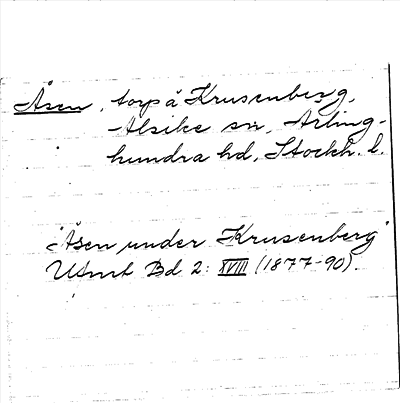 Åsen, torp å Krusenberg,
Alsike sn, Ärling-
hundra hd, Stockh. l.
"Åsen under Krusenberg"
Utmt Bd 2: XVIII (1877-90).